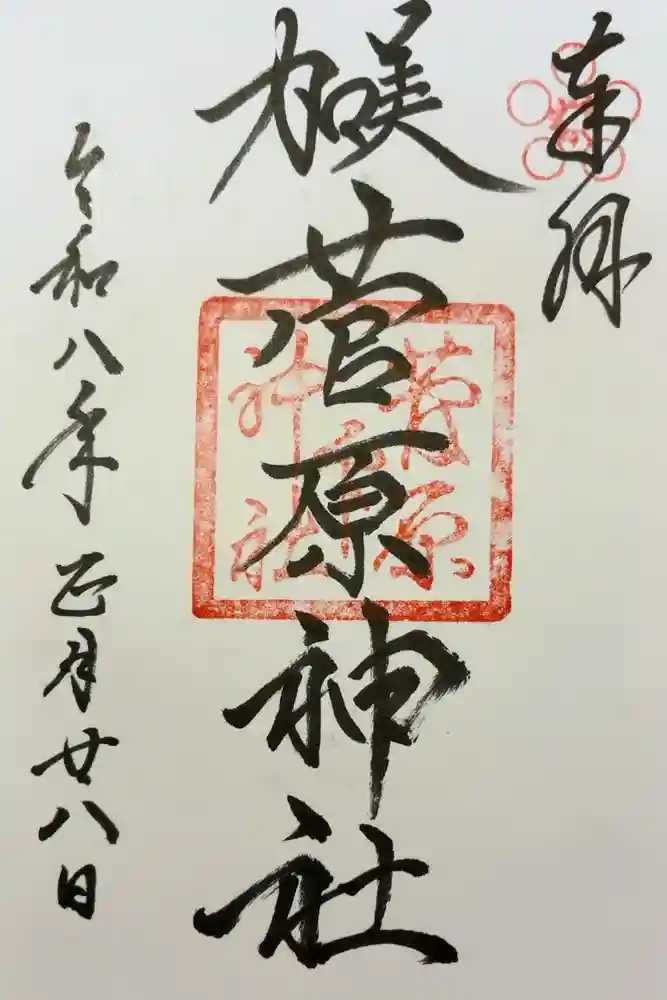 奉拝
加美
菅原神社
令和八年正月廿八日
菅原
神社